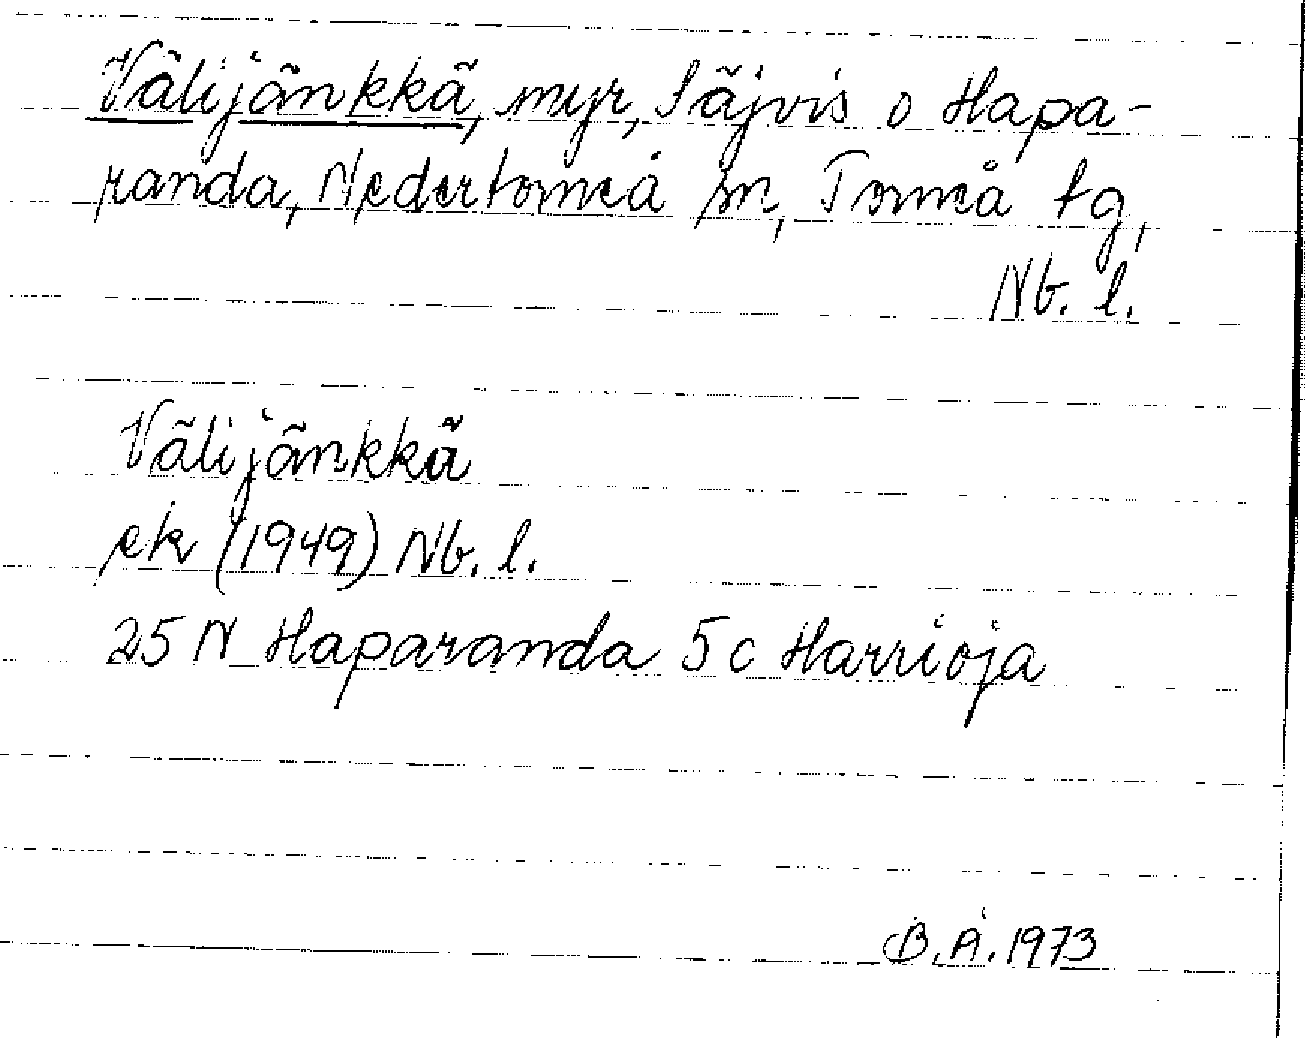 Välijänkkä, myr, Säjvis o Hapa-
randa, Nedertorneå sn, Torneå tg,
Nb. l.
Välijänkkä
ek (1949) Nb. l.
25 N Haparanda 5c Harrioja
B. Å. 1973